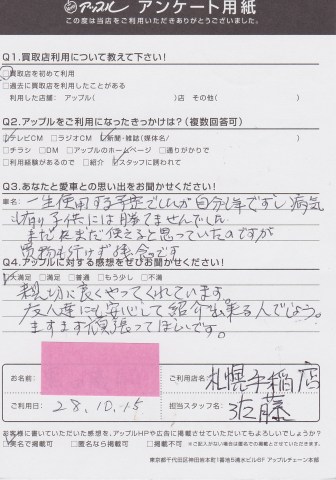 アップル アンケート用紙
この度は当店をご利用いただきありがとうございました。
Q1.買取店利用について教えて下さい!
□買取店を初めて利用
□過去に買取店を利用したことがある
利用した店舗: アップル( )店 その他( )
Q2.アップルをご利用になったきっかけは?(複数回答可)
□テレビCM □ラジオCM □新聞・雑誌(媒体名/ )
□チラシ □DM □アップルのホームページ □通りがかりで
□利用経験があるので □紹介 □スタッフに誘われて
Q3.あなたと愛車との思い出をお聞かせください!
車名:
一生使用する予定でしたが自分も年ですし病気
もあり子供には勝てませんでした
まだまだ使えると思っていたのですが
買物も行けず残念です
Q4.アップルに対する感想をぜひお聞かせください!
□大満足 □満足 □普通 □もう少し □不満
親切に良くやってくれています。
友人達にも安心して紹介出来る人でしょう。
ますます頑張ってほしいです。
お名前:
ご利用店名: 札幌手稲店
ご利用日: 28.10.15
担当スタッフ名: 佐藤
お客様に書いていただいた感想を、アップルHPや広告に掲載させていただいてもよろしいでしょうか?
□実名で掲載可 □匿名なら掲載可 □掲載不可
※ご記入がない場合は匿名で掲載させていただきます。
東京都千代田区神田岩本町1番地6通水ビル8F アップルチェーン本部